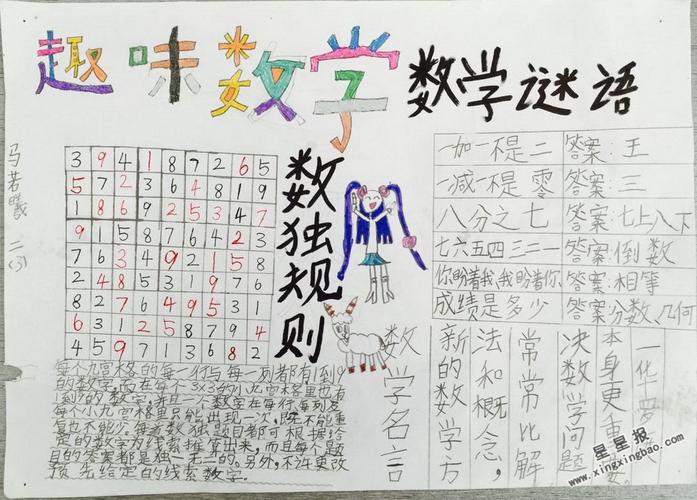 趣味数学
数学谜语
马若曦 二(3)
3 9 4 1 8 7 2 6 5
5 7 2 3 6 4 8 1 9
1 8 6 9 2 5 3 4 7
9 1 5 8 7 6 4 2 3
7 6 3 4 9 2 1 5 8
2 4 8 5 3 1 9 7 6
8 2 7 6 4 9 5 3 1
6 3 1 2 5 8 7 9 4
4 5 9 7 1 3 6 8 2
数独规则
每个九宫格的每一行与每一列都有1到9
的数字,而在每个3×3的小九宫格里也有
1到9的数字,并且一个数字在每行每列及
每个小九宫里只能出现一次,既不能重
复也不能少,每道数独题目都可根据给
定的数字为线索推管出来,而且每个题
目的答案都是独一无二的。另外,不许更改
预先给定的线索数字。
一加一不是二 答案:王
一减一不是零 答案:三
八分之七 答案:七上八下
七六五四三二一 答案:倒数
你盼着我,我盼着你 答案:相等
成绩是多少 答案:分数,几何
数学名言
新的数学方
法和概念,
常常比解
决数学问题
本身更重要。
一华罗庚
星星报
www.xingxingbao.com